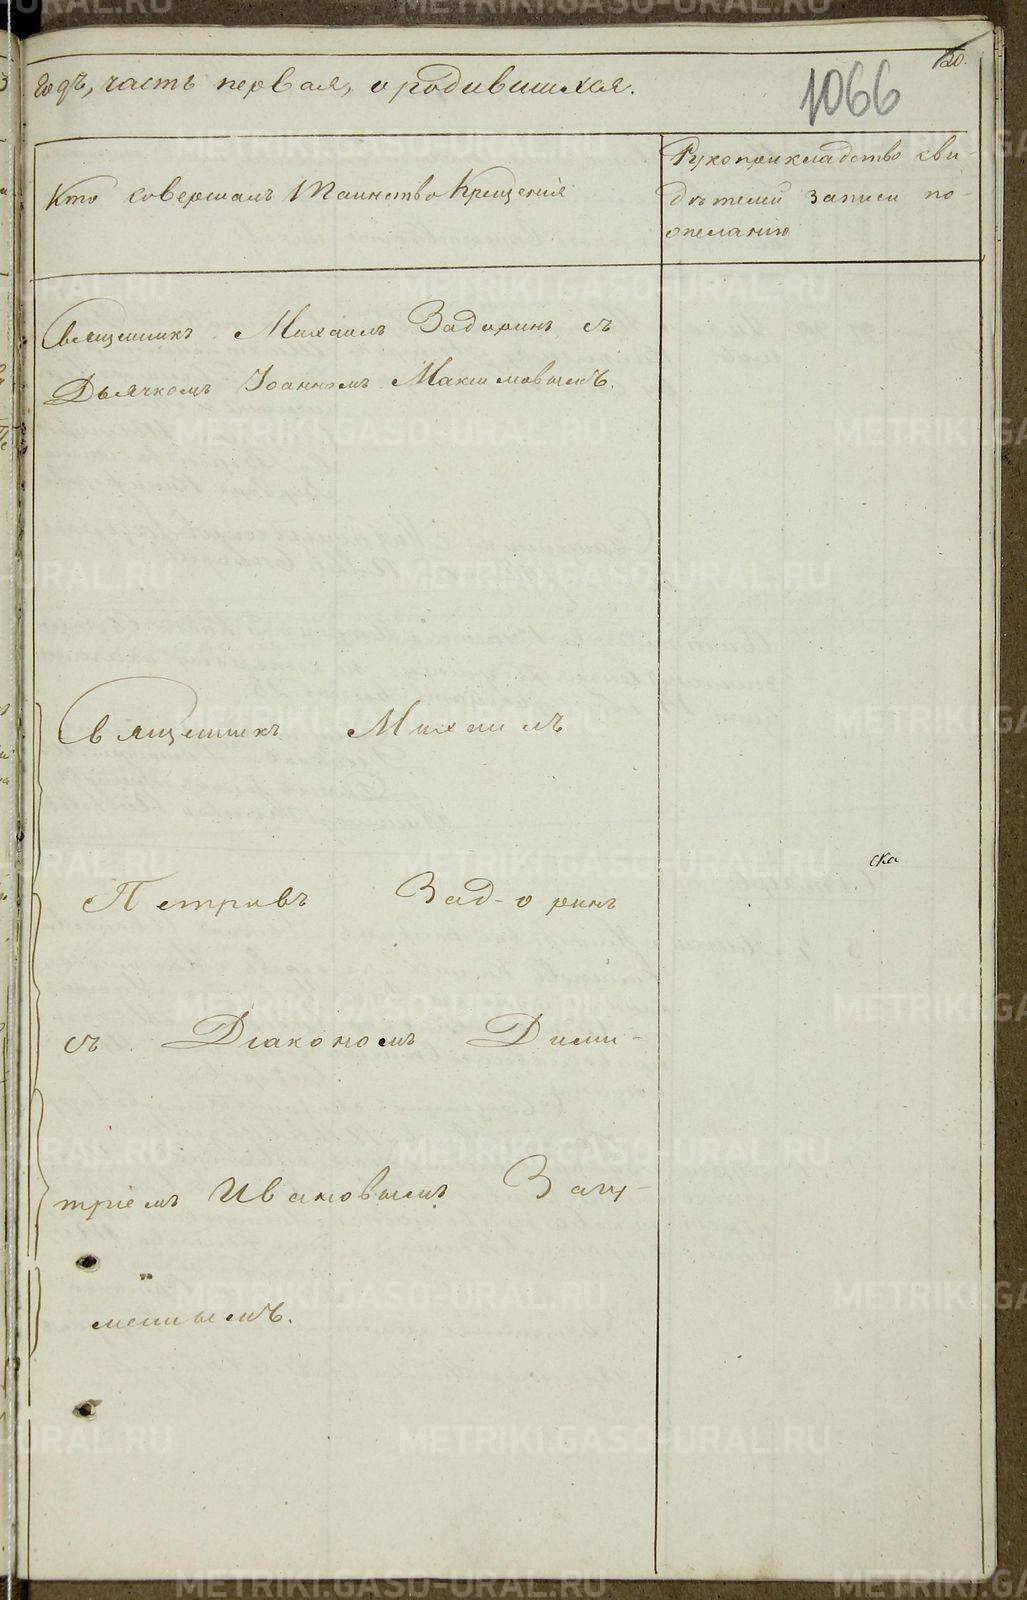 120.
1066
годъ, часть первая, о родившихся.
Кто совершалъ Таинство Крещенія
Рукоприкладство сви-
дѣтелей записи по
желанію
Священникъ Михаилъ Задоринъ съ
Дьячкомъ Іоанномъ Максимовымъ.
Священникъ Михаилъ
Петровъ Зад-оринъ
съ Діакономъ Дими-
тріемъ Ивановымъ
ска
METRIKI.GASO-URAL.RU